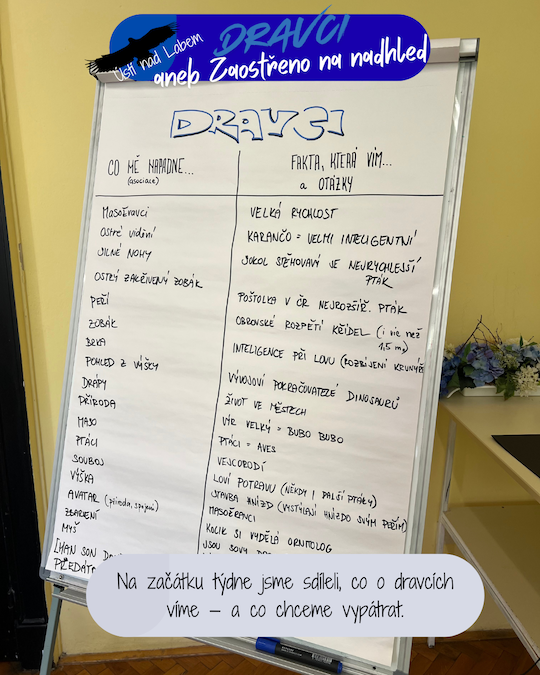 Ústí nad Labem
DRAVCI
aneb Zaostřeno na nadhled
DRAVCI
CO MĚ NAPADNE...
(asociace)
FAKTA, KTERÁ VÍM...
a OTÁZKY
MASOŽRAVCI
OSTRÉ VIDĚNÍ
SILNÉ NOHY
OSTRÝ ZAKŘIVENÝ ZOBÁK
PEŘÍ
ZOBÁK
BRKA
POHLED Z VÝŠKY
DRÁPY
PŘÍRODA
MASO
PTÁCI
SOUBOJ
VÝŠKA
AVATAR (příroda, spojení)
ZBARVENÍ
MYŠ
[HAN SON
PŘEDÁT
VELKÁ RYCHLOST
KARANČO = VELMI INTELIGENTNÍ
SOKOL STĚHOVAVÝ JE NEJRYCHLEJŠÍ
PTÁK
POŠTOLKA V ČR NEJROZŠÍŘ. PTÁK
OBROVSKÉ ROZPĚTÍ KŘÍDEL (i více než
1,5 m)
INTELIGENCE PŘI LOVU (ROZBÍJENÍ KRUNÝŘ
VÝVOJOVÍ POKRAČOVATELÉ DINOSAURŮ
ŽIVOT VE MĚSTECH
VÝR VELKÝ = BUBO BUBO
PTÁCI = AVES
VEJCORODÍ
LOVÍ POTRAVU (NĚKDY I DALŠÍ PTÁKY)
STAVBA HNÍZD (VYSTÝLAJÍ HNÍZDO SVÝM PEŘÍM)
MASOŽRANCI
KOLIK SI VYDĚLÁ ORNITOLOG
JSOU SOVY
Na začátku týdne jsme sdíleli, co o dravcích
víme – a co chceme vypátrat.